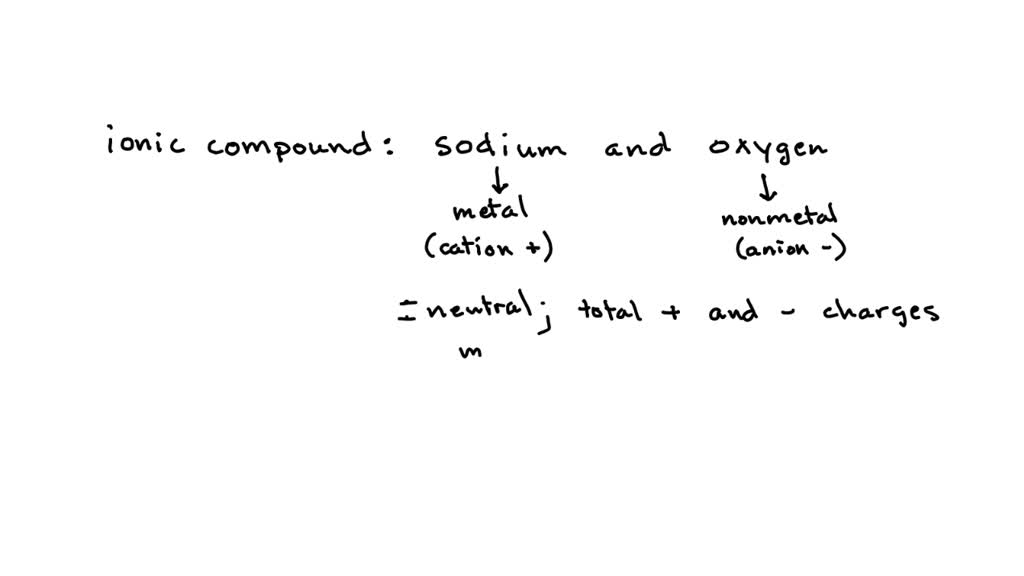 ionic compound: sodium and oxygen
↓ ↓
metal nonmetal
(cation +) (anion -)
= neutral; total + and - charges
m